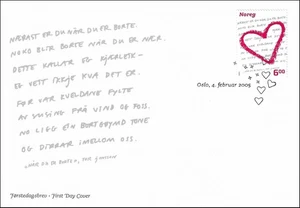 NÆRAST ER DU NÅR DU ER BORTE.
NOKO BLIR BORTE NÅR DU ER NÆR.
DETTE KALLAR EG KJÆRLEIK —
EG VEIT IKKJE KVA DET ER.
FØR VAR KVELDANE FYLTE
AV SUSING FRÅ VIND OG FOSS.
NO LIGG EIN BORTGØYMD TONE
OG DIRRAR MELLOM OSS.
Noreg
6.00
Oslo, 4. februar 2005
Førstedagsbrev - First Day Cover